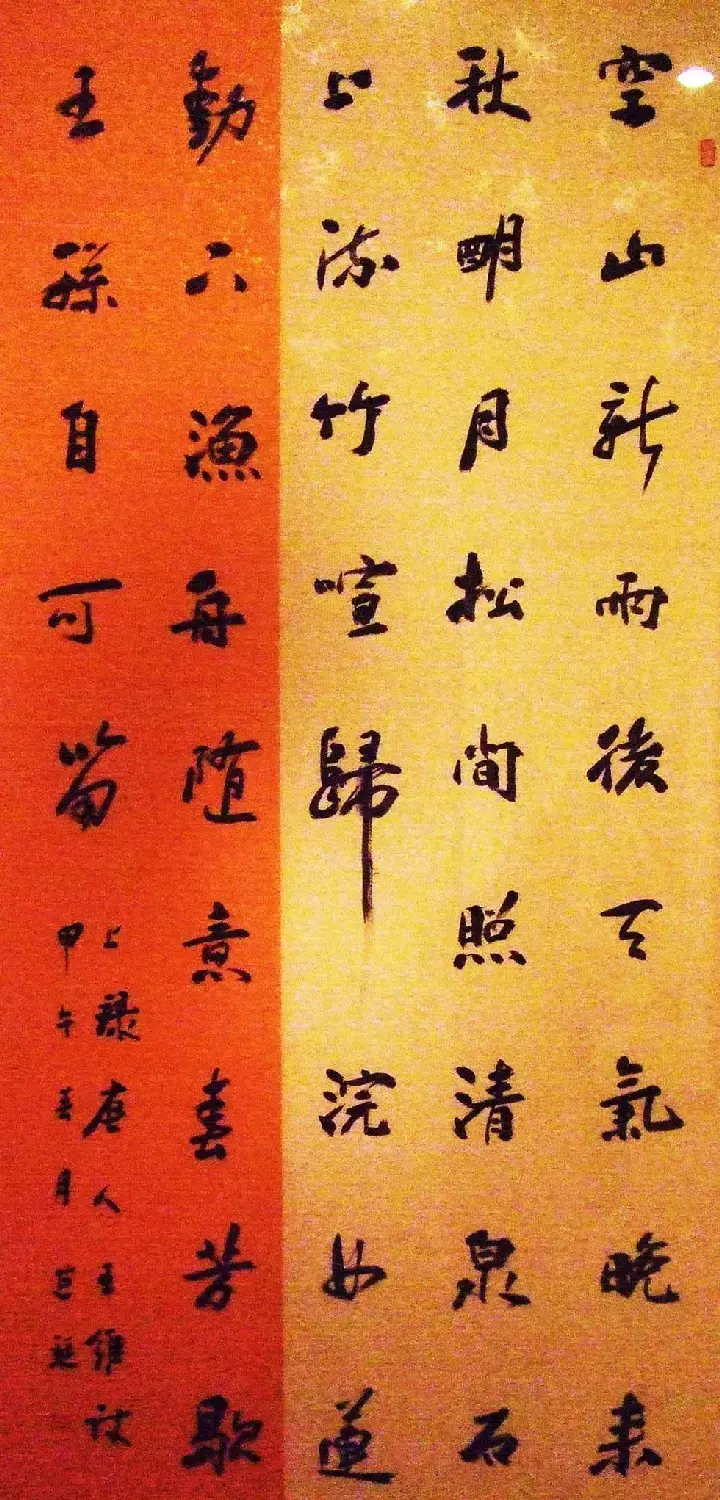 空山新雨後天氣晚来
秋明月松間照清泉石
上流竹喧歸浣女蓮
動下漁舟随意春芳歇
王孫自可留
上録唐人王維詩
甲午春月